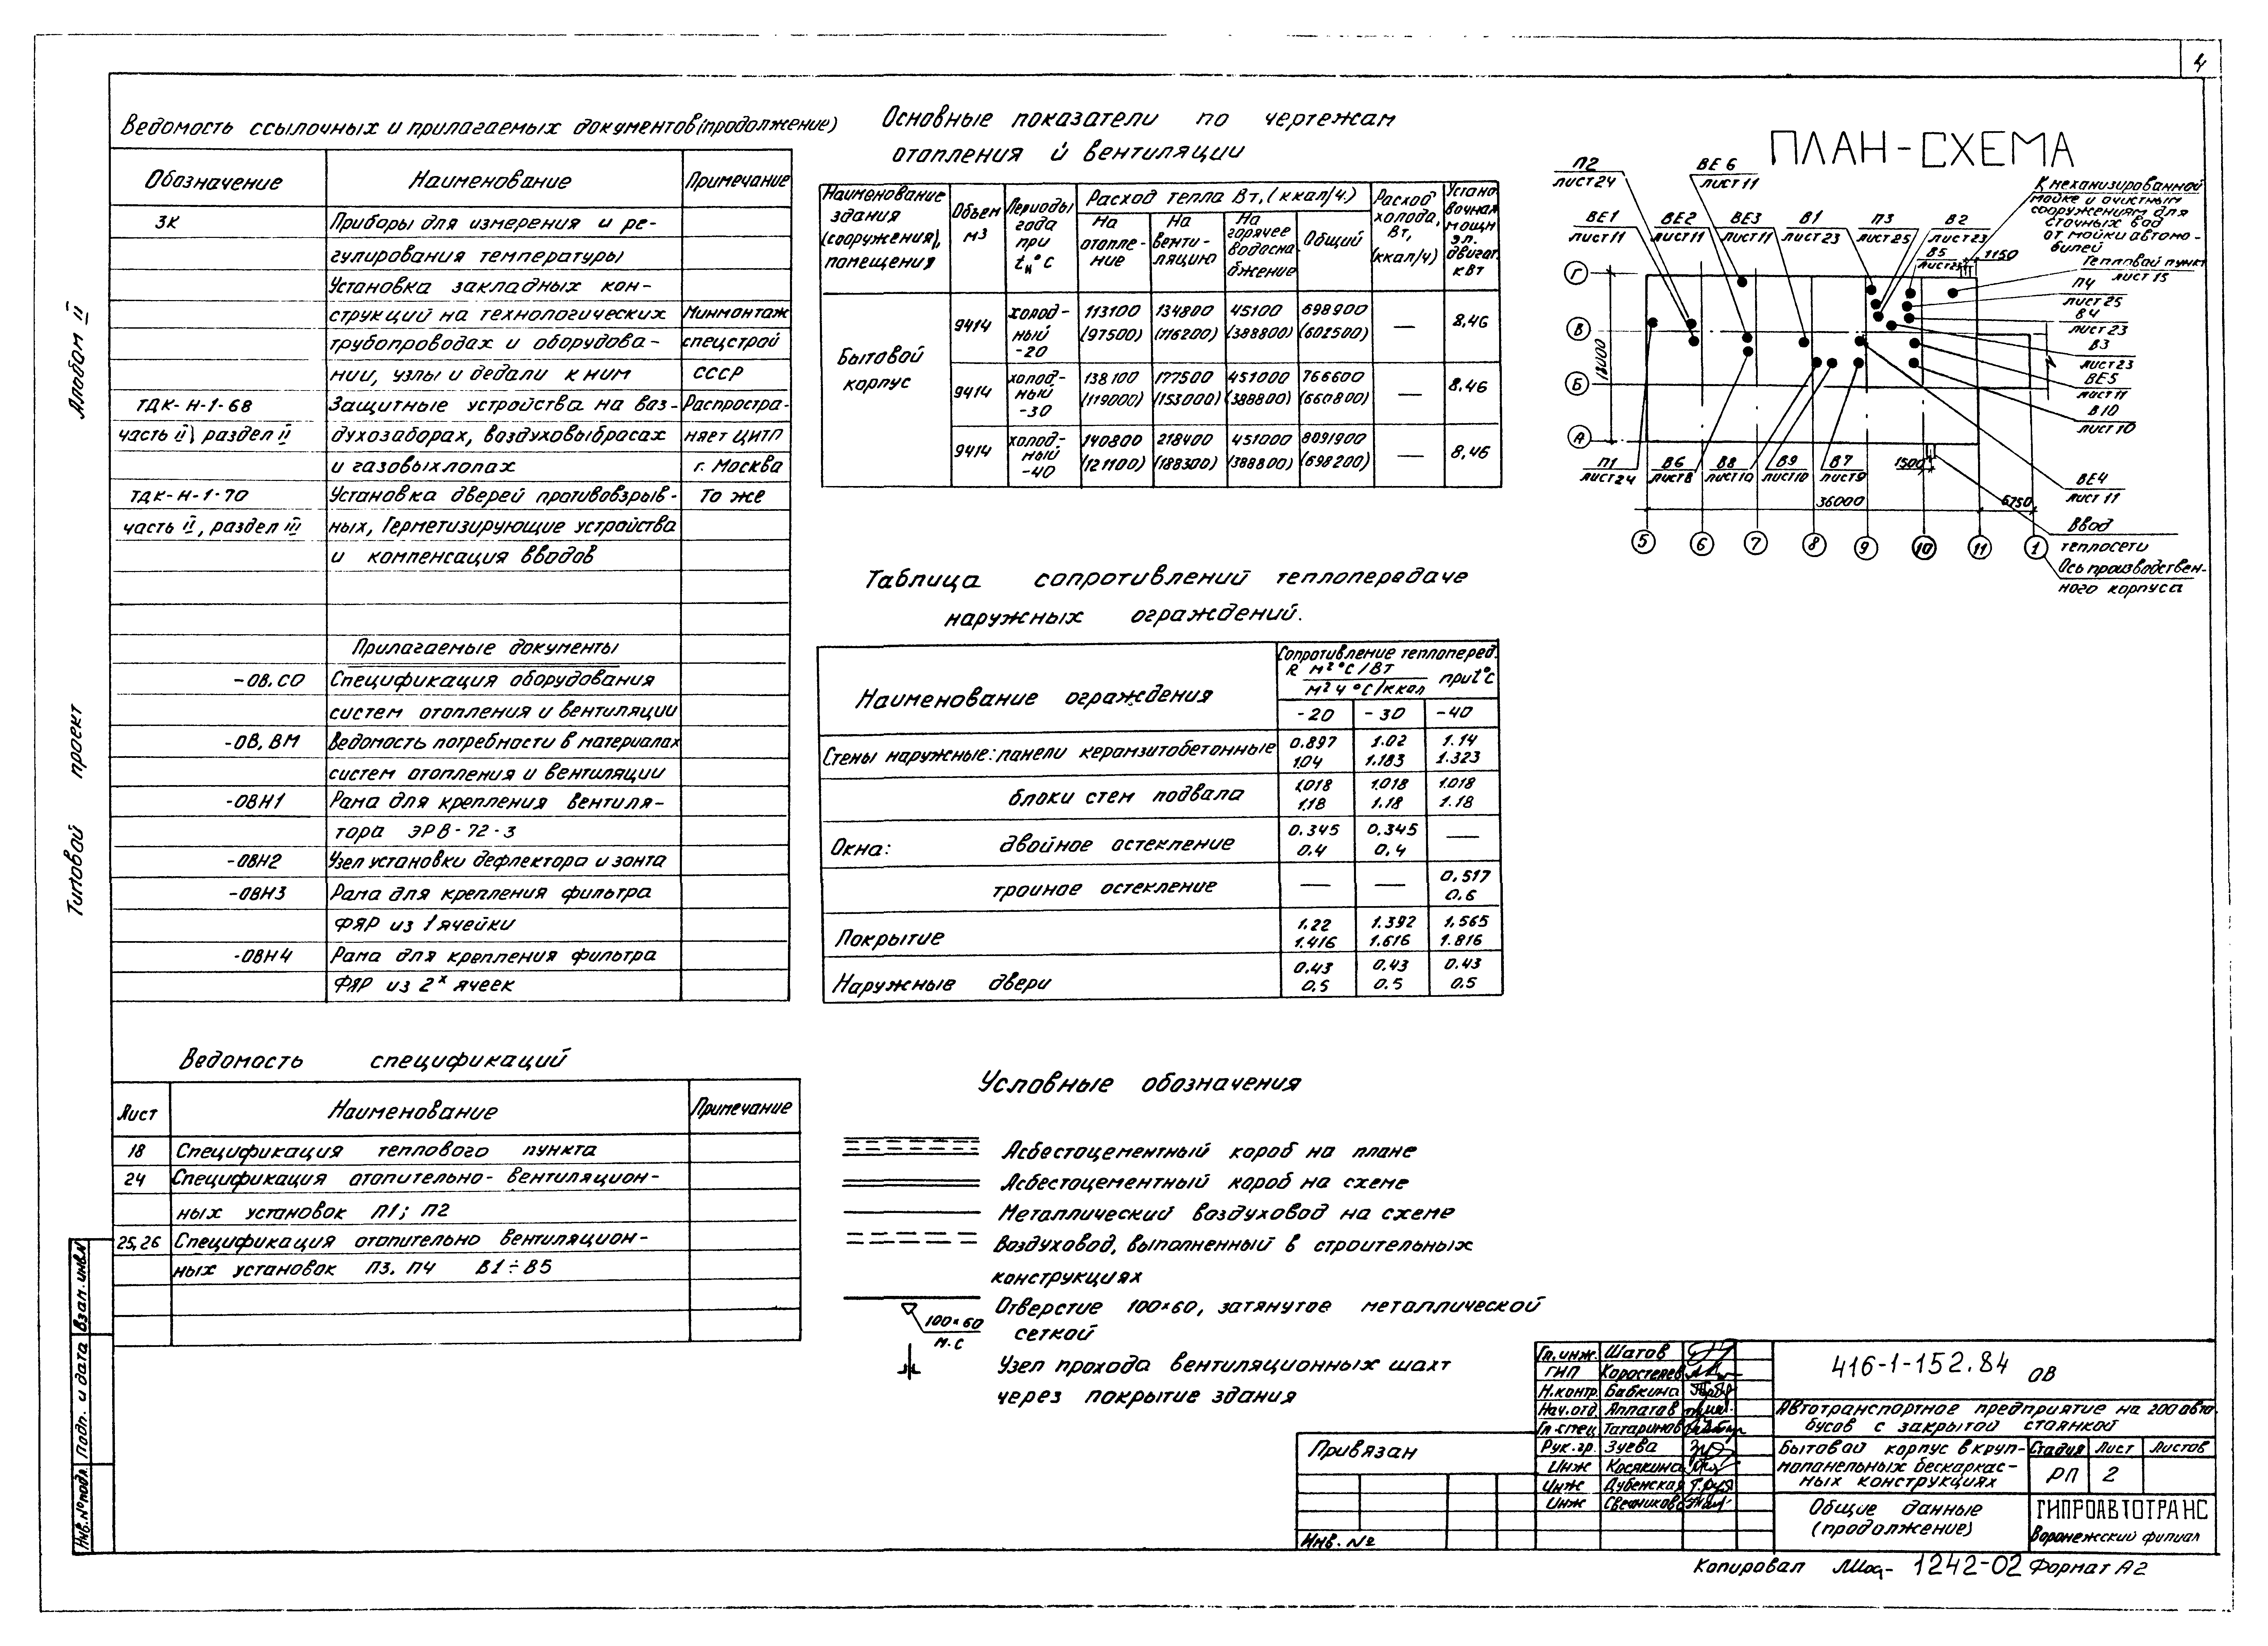 4
Ведомость ссылочных и прилагаемых документов (продолжение)
Обозначение Наименование Примечание
ЗК Приборы для измерения и ре-
гулирования температуры
Установка закладных кон-
струкций на технологических Минмонтаж
трубопроводах и оборудова- спецстрой
нии, узлы и дедали к ним СССР
ТДК-Н-1-68 Защитные устройства на воз- Распростра-
часть II, раздел II духозаборах, воздуховыбросах няет ЦИТП
и газовыхлопах г. Москва
ТДК-Н-1-70 Установка дверей противовзрыв- То же
часть II, раздел III ных, Герметизирующие устройства
и компенсация вводов
Прилагаемые документы
-ОВ.СО Спецификация оборудования
систем отопления и вентиляции
-ОВ, ВМ Ведомость потребности в материалах
систем отопления и вентиляции
-ОВН1 Рама для крепления вентиля-
тора ЭРВ-72-3
-ОВН2 Узел установки дефлектора и зонта
-ОВН3 Рама для крепления фильтра
ФЯР из 1 ячейки
-ОВН4 Рама для крепления фильтра
ФЯР из 2х ячеек
Ведомость спецификаций
Лист Наименование Примечание
18 Спецификация теплового пункта
24 Спецификация отопительно-вентиляцион-
ных установок П1; П2
25,26 Спецификация отопительно вентиляцион-
ных установок П3. П4 В1÷В5
Основные показатели по чертежам
отопления и вентиляции
Наименование здания (сооружения), помещения
Объем м3
Периоды года при tн°С
Расход тепла Вт, (ккал/ч.)
На отопле-ние
На венти-ляцию
На горячее водосна-бжение
Общий
Расход холода, Вт, (ккал/ч)
Устано вочная мощн эл. двигат. кВт
Бытовой корпус
9414 холод-ный -20 113100 (97500) 134800 (116200) 45100 (388800) 698900 (602500) — 8,46
9414 холод-ный -30 138100 (119000) 177500 (153000) 451000 (388800) 766600 (660800) — 8.46
9414 холод-ный -40 140800 (121100) 218400 (188300) 451000 (388800) 8091900 (698200) — 8,46
Таблица сопротивлений теплопередаче
наружных ограждений.
Наименование ограждения
Сопротивление теплоперед.
R м²°С/Вт
м²ч°С/ккал при t°С
-20 -30 -40
Стены наружные: панели керамзитобетонные 0.897 1.02 1.14
1.04 1.183 1.323
блоки стен подвала 1.018 1.018 1.018
1.18 1.18 1.18
Окна: двойное остекление 0.345 0.345 —
0.4 0,4
тройное остекление — — 0.517
0.6
Покрытие 1.22 1.392 1.565
1.416 1.616 1.816
Наружные двери 0.43 0.43 0.43
0.5 0.5 0.5
Условные обозначения
Асбестоцементный короб на плане
Асбестоцементный короб на схеме
Металлический воздуховод на схеме
Воздуховод, выполненный в строительных
конструкциях
Отверстие 100×60, затянутое металлической
100×60
м.с
сеткой
Узел прохода вентиляционных шахт
через покрытие здания
ПЛАН-СХЕМА
П2
лист 24
ВЕ 6
лист 11
К механизированной
мойке и очистным
сооружениям для
сточных вод
от мойки автомо-
билей
ВЕ1
лист 11
ВЕ2
лист 11
ВЕ3
лист 11
В1
лист 23
П3
лист 25
В2
лист 23
В5
лист 23
1150
Тепловой пункт
лист 15
П4
лист 25
В4
лист 23
В3
лист 23
ВЕ5
лист 11
В10
лист 10
ВЕ4
лист 11
Г
В
Б
А
18000
П1
лист 24
В6
лист 8
В8
лист 10
В9
лист 10
В7
лист 9
1500
36000
6750
Ввод
теплосети
Ось производствен-
ного корпуса
5 6 7 8 9 10 11 1
Альбом II
Типовой проект
Взам. инв.№
Подп. и дата
Инв.№ подл
Привязан
Инв. №
Гл.инж. Шатов
ГИП Коростелев
Н.контр. Бабкина
Нач.отд Аппатов
Гл.спец Татаринов
Рук.гр. Зуева
Инж Косякина
Инж Дубенская
Инж Свечников
416-1-152.84 ОВ
Автотранспортное предприятие на 200 авто
бусов с закрытой стоянкой
Бытовой корпус в круп-
нопанельных бескаркас-
ных конструкциях
Стадия Лист Листов
РП 2
Общие данные
(продолжение)
ГИПРОАВТОТРАНС
Воронежский филиал
Копировал 1242-02 Формат А2